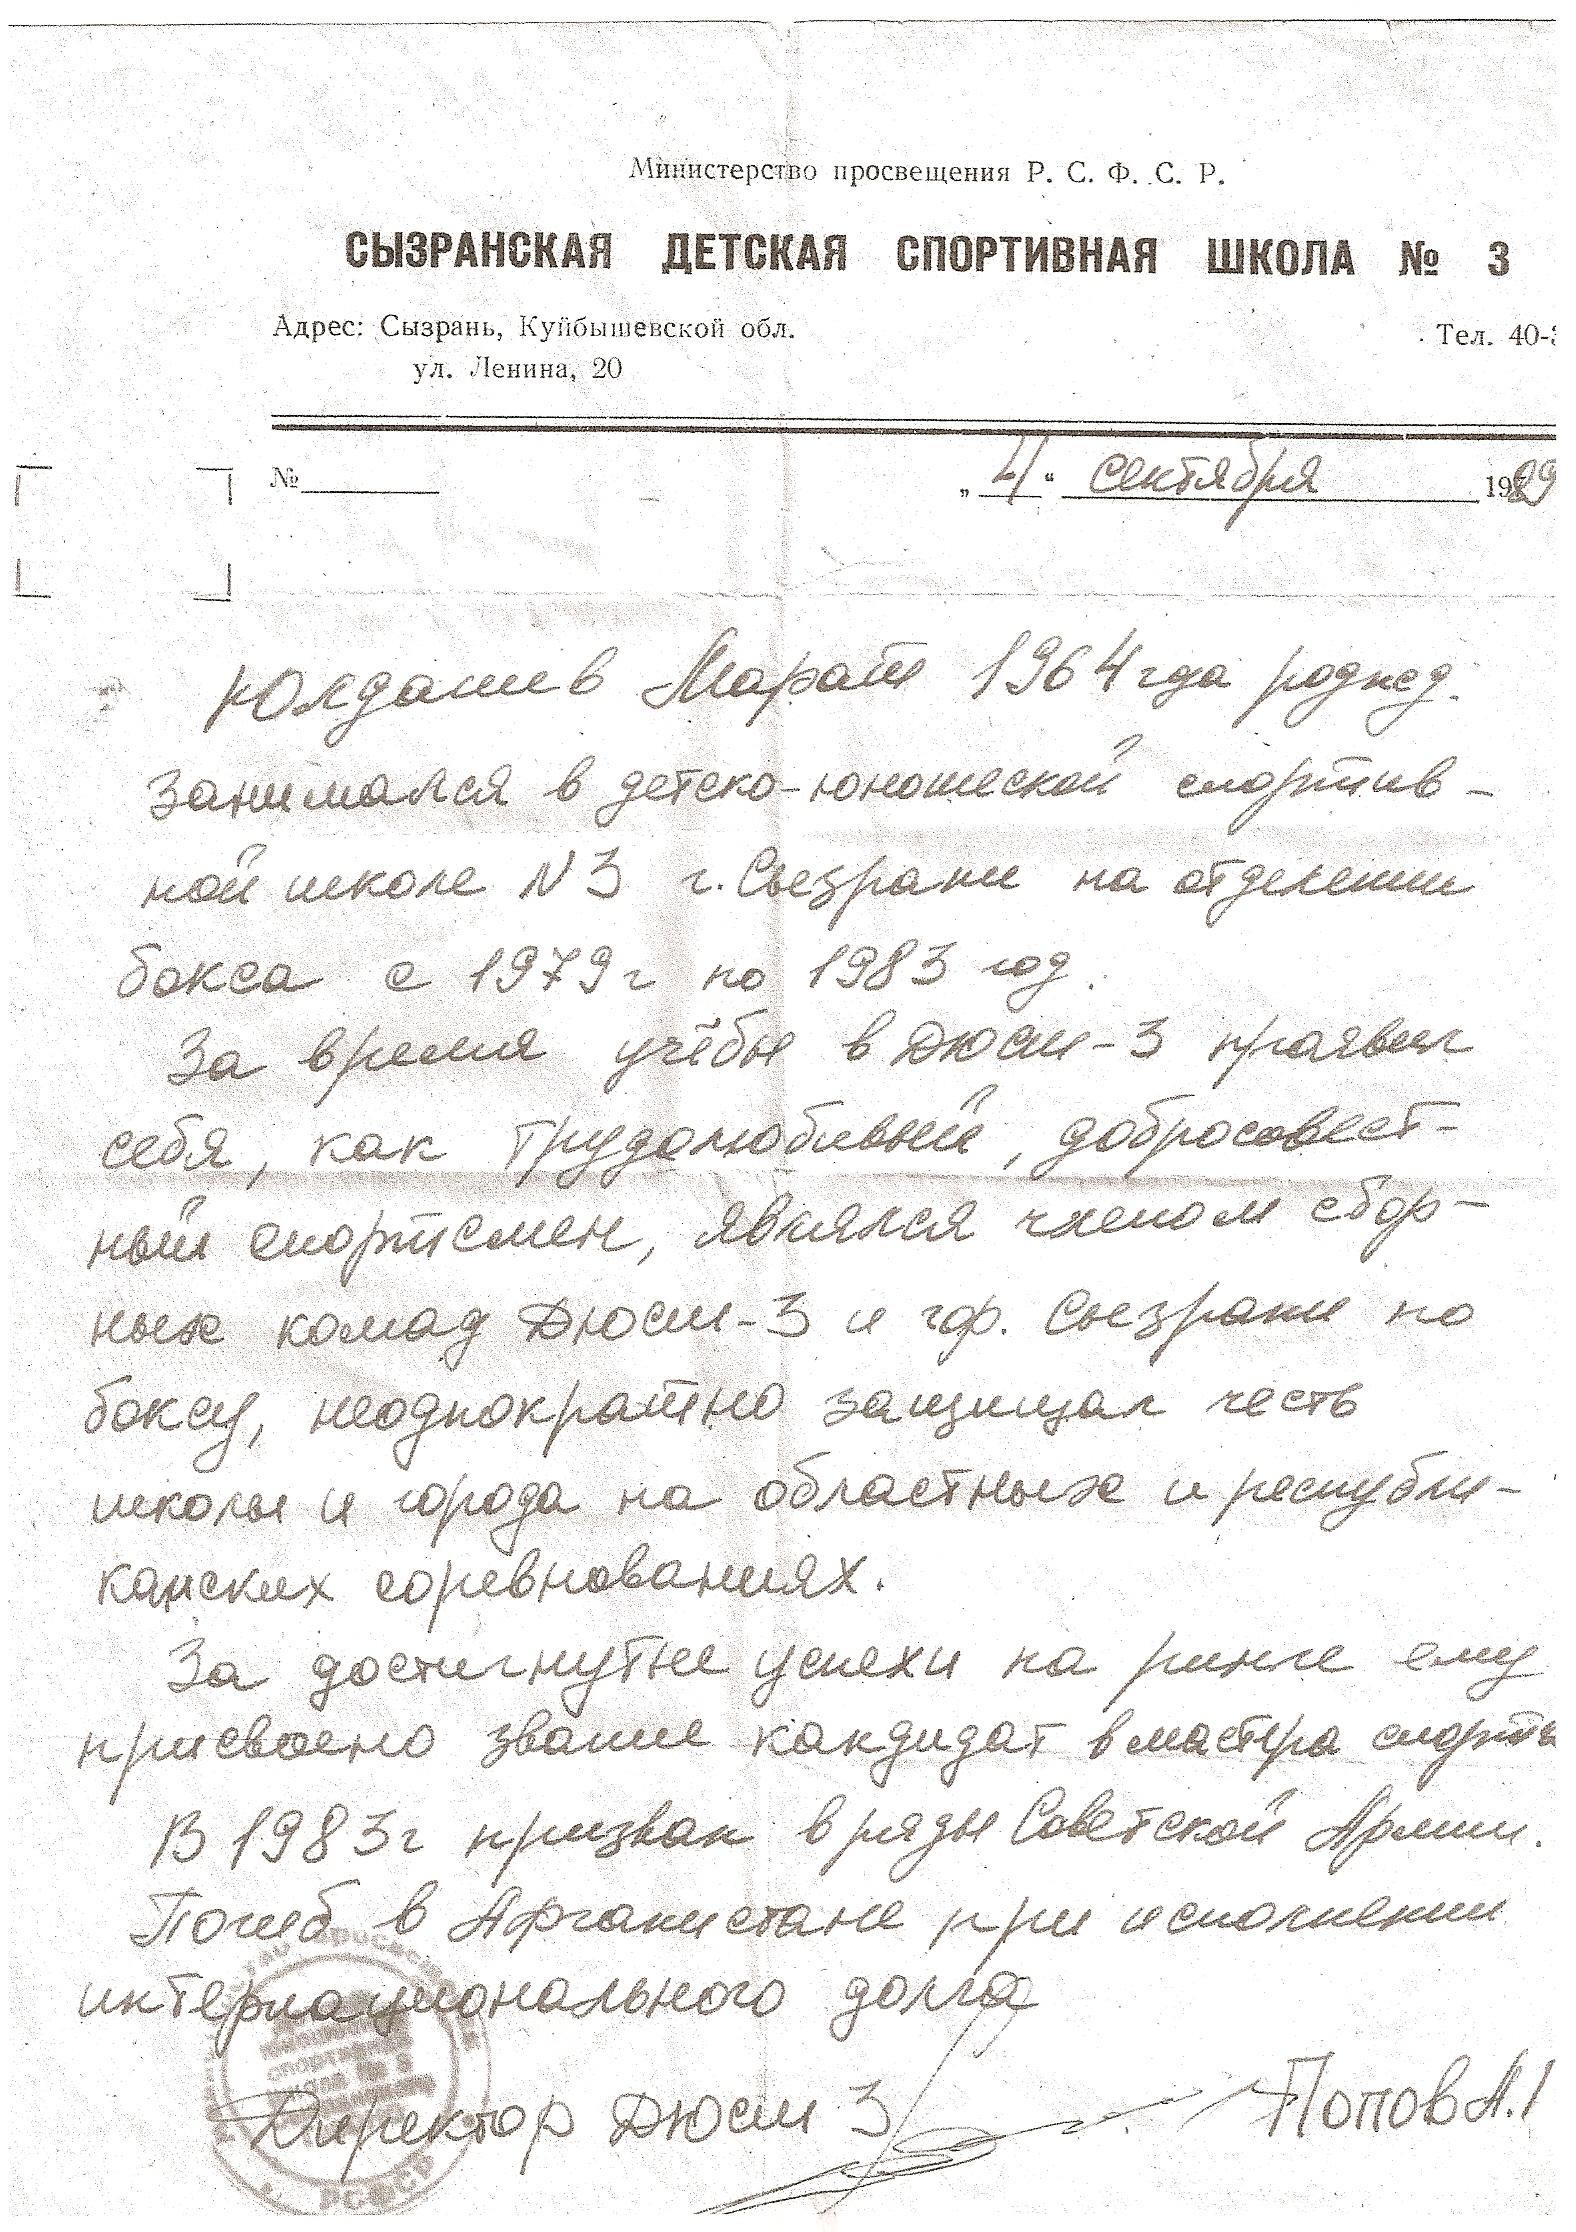 Министерство просвещения Р. С. Ф. С. Р.
СЫЗРАНСКАЯ ДЕТСКАЯ СПОРТИВНАЯ ШКОЛА № 3
Адрес: Сызрань, Куйбышевской обл.
ул. Ленина, 20
Тел. 40-
№ „ 4 “ сентября 1989
Юлдашев Марат 1964 гда рожд.
занимался в детско-юношеской спортив-
ной школе N 3 г. Сызрани на отделении
бокса с 1979г по 1983 год.
За время учёбы в ДЮСШ-3 праявил
себя, как трудолюбивый, добросовест-
ный спортсмен, являлся членом сбор-
ных комад ДЮСШ-3 и гор. Сызрани по
боксу, неоднократно защищал честь
школы и города на областных и республи-
канских соревнованиях.
За достигнутые успехи на ринге ему
присвоено звание кандидат в мастера спорта
В 1983г призван в ряды Советской Армии.
Погиб в Афганистане при исполнении
интернационального долга
Директор ДЮСШ 3 Попов А.
РСФСР